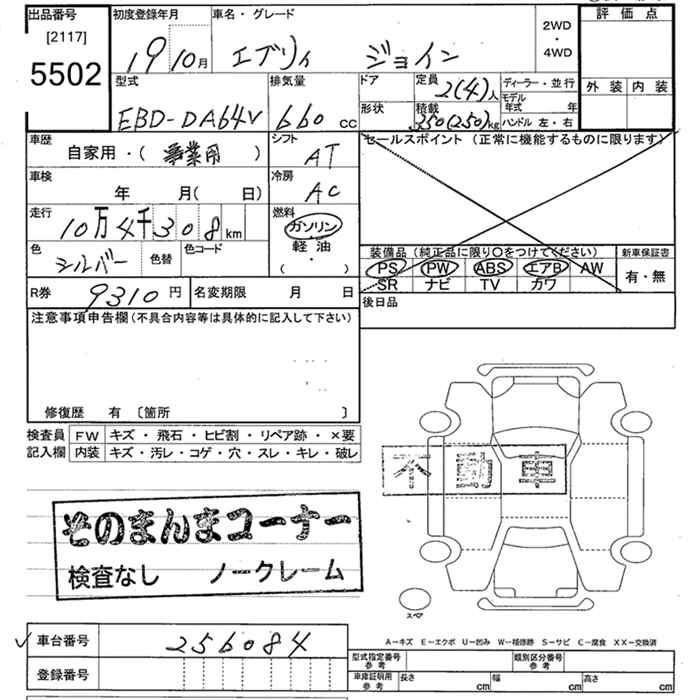 出品番号
[2117]
5502
初度登録年月
19 10月
車名・グレード
エブリィ ジョイン
2WD
・
4WD
評価点
外装 内装
型式
EBD-DA64V
排気量
660 cc
ドア
形状
定員
2(4)人
積載
350(250)kg
ディーラー・並行
モデル年式 年
ハンドル 左・右
車歴
自家用・( 事業用 )
シフト
AT
セールスポイント (正常に機能するものに限ります)
車検
年 月( 日)
冷房
AC
走行
10万4千308km
燃料
ガソリン
軽油
( ・ )
色
シルバー
色替
色コード
装備品 (純正品に限り○をつけてください)
PS PW ABS エアB AW
SR ナビ TV カワ
新車保証書
有・無
R券 9310円
名変期限 月 日
後日品
注意事項申告欄(不具合内容等は具体的に記入して下さい)
修復歴 有 〔箇所 〕
検査員 FW キズ・飛石・ヒビ割・リペア跡・×要
記入欄 内装 キズ・汚レ・コゲ・穴・スレ・キレ・破レ
不動車
そのまんまコーナー
検査なし ノークレーム
スペア
車台番号 256084
登録番号
A－キズ E－エクボ U－凹み W－補修跡 S－サビ C－腐食 XX－交換済
型式指定番号 参考
類別区分番号 参考
車庫証明用 参考
長さ cm
幅 cm
高さ cm